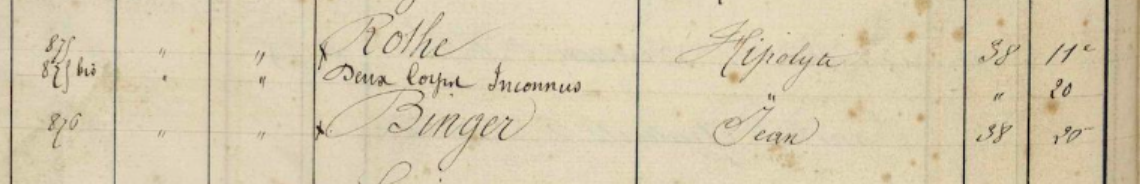 875 " " x Rothe Hipolya 38 11e
875 bis " " Deux Corps Inconnus " 20
876 " " x Binger Jean 38 20